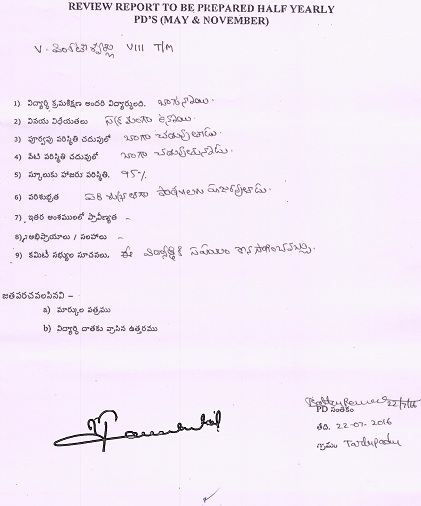 REVIEW REPORT TO BE PREPARED HALF YEARLY
PD'S (MAY & NOVEMBER)
V. వెంకటేశ్వర్లు VIII T/M
1) విద్యార్థి క్రమశిక్షణ అందరి విద్యార్థులది. బాగున్నాయి.
2) వినయ విధేయతలు సక్రమంగా ఉన్నాయి.
3) పూర్వపు పరిస్థితి చదువులో బాగా చదువుతాడు.
4) నేటి పరిస్థితి చదువులో బాగా చదువుతున్నాడు.
5) స్కూలుకు హాజరు పరిస్థితి. 95%
6) పరిశుభ్రత పరిశుభ్రంగా
7) ఇతర అంశములలో ప్రావీణ్యత –
8) అభిప్రాయాలు / సలహాలు –
9) కమిటీ సభ్యుల సూచనలు. ఈ విద్యార్థికి సహాయం కొనసాగించవచ్చు.
జతపరచవలసినవి –
a) మార్కుల పత్రము
b) విద్యార్థి దాతకు వ్రాసిన ఉత్తరము
22/7/16
PD సంతకం
తేది. 22-07-2016
గ్రామం Tadepadu